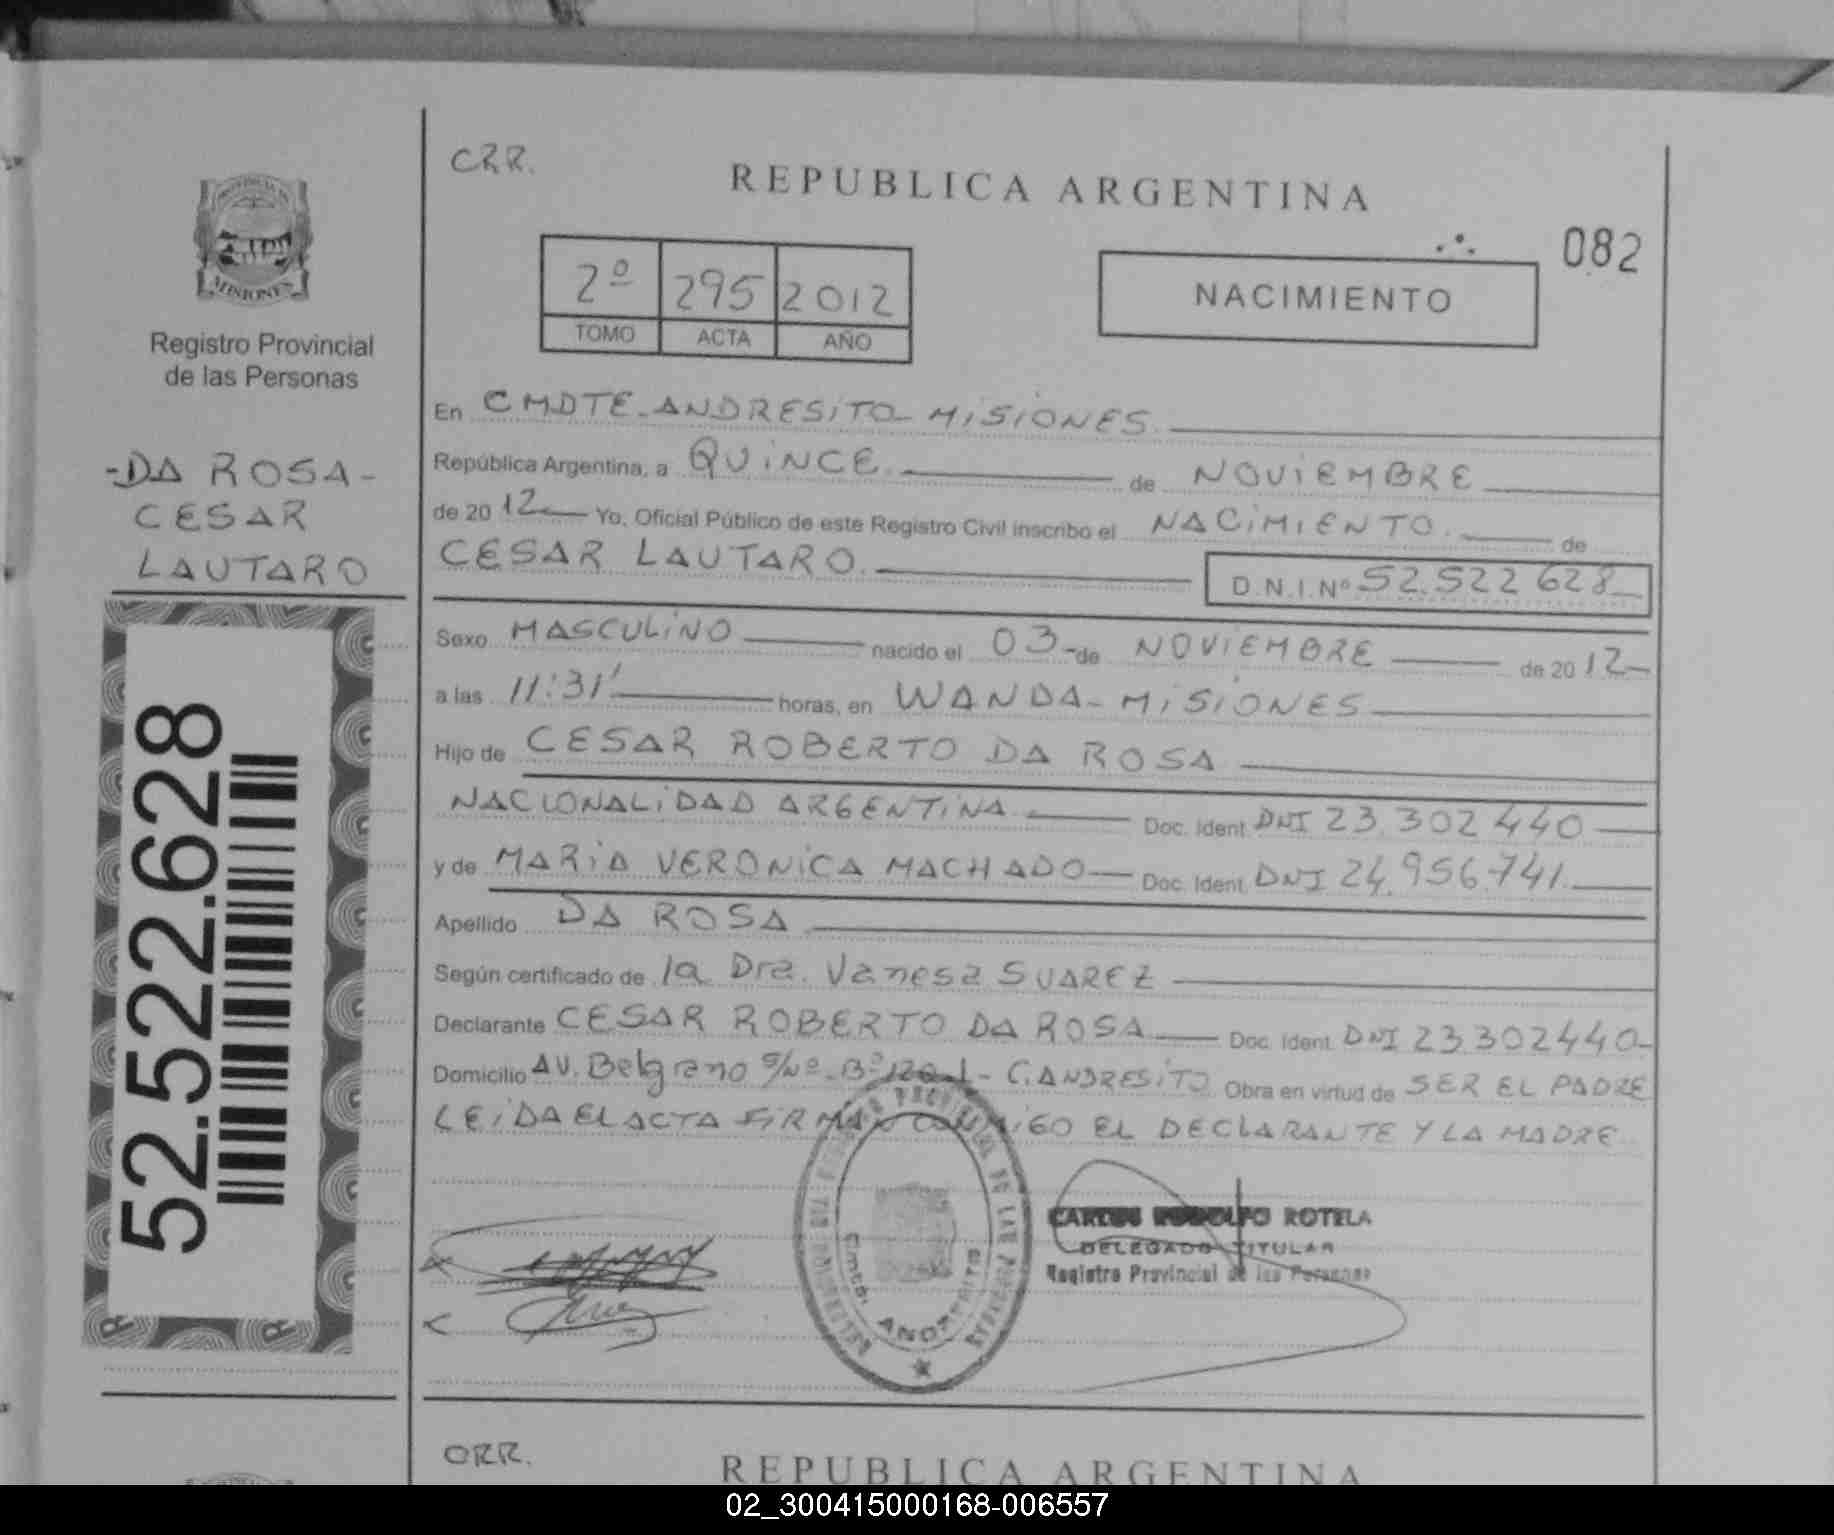 CRR.
REPUBLICA ARGENTINA
082
PROVINCIA DE
MISIONES
Registro Provincial
de las Personas
2º 295 2012
TOMO ACTA AÑO
NACIMIENTO
-DA ROSA-
CESAR
LAUTARO
52.522.628
En CMDTE. ANDRESITO - MISIONES.
República Argentina, a QUINCE. de NOVIEMBRE
de 20 12 Yo, Oficial Público de este Registro Civil inscribo el NACIMIENTO. de
CESAR LAUTARO. D.N.I.Nº 52.522 628
Sexo MASCULINO nacido el 03 - de NOVIEMBRE de 20 12
a las 11:31' horas, en WANDA - MISIONES
Hijo de CESAR ROBERTO DA ROSA
NACIONALIDAD ARGENTINA Doc. Ident. DNI 23.302 440
y de MARIA VERONICA MACHADO Doc. Ident. DNI 24.956.741.
Apellido DA ROSA
Según certificado de la Dra. Vanesa SUAREZ
Declarante CESAR ROBERTO DA ROSA Doc. Ident. DNI 23.302440
Domicilio AV. Belgrano S/Nº - C. ANDRESITO Obra en virtud de SER EL PADRE
LEIDA EL ACTA FIRMAN CONMIGO EL DECLARANTE Y LA MADRE
CARLOS RODOLFO ROTELA
DELEGADO TITULAR
Registro Provincial de las Personas
Cmte. ANDRESITO
ORR.
REPUBLICA ARGENTINA
02_300415000168-006557